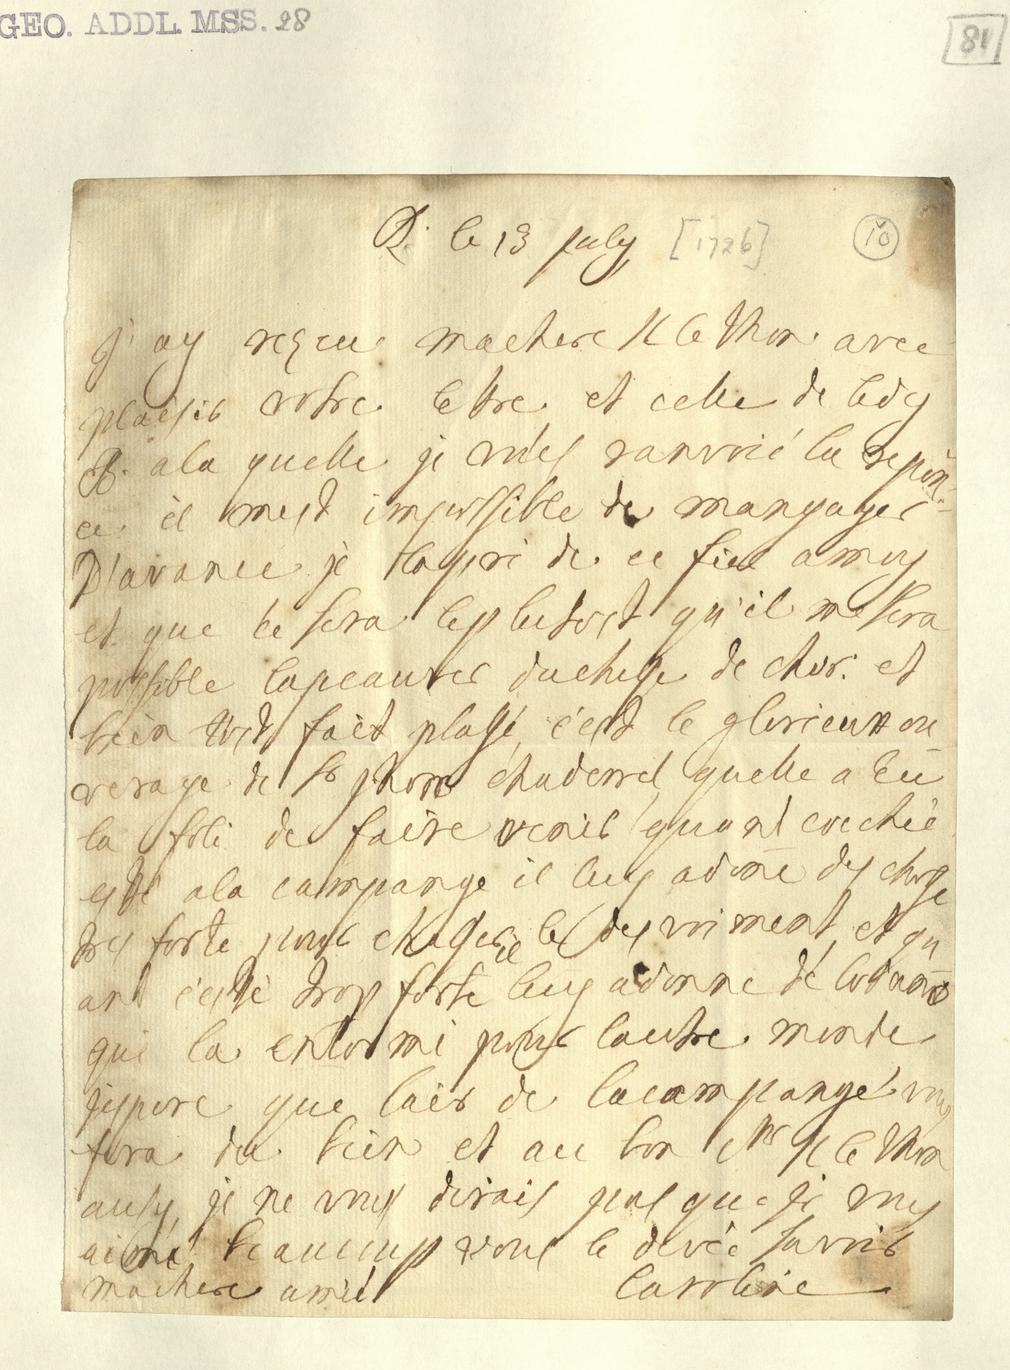 GEO. ADDL. MSS. 28
81
R. le 13 july [1726]
10
j'ay reçeu machere Kle Thon avec
plaisir votre lettre et celle de Ledy
P. ala quelle je vües ranvoié la repon-
ce il mest impossible de mangager
D'avance je
et que ce sera leplutost qu'il me sera
possible lapeauvre duchese de chor. et
bein tost fait plasse, c'est le glorieux ou
verage de Sr quelle a eü
la foli de faire venir quand
esté ala campange il luy adoné des chose
tres forte pour les et qu
ant c'esté trop forte luy adonne dé lodanom
qui la entormi pour lautre monde
jespere que lair de lacampangé vous
fera du bien et au bon Mr Kle Thon
ausy, je ne vous dirais pas que je vous
aime beaucoup vous le devée savoir
machere amié Caroline